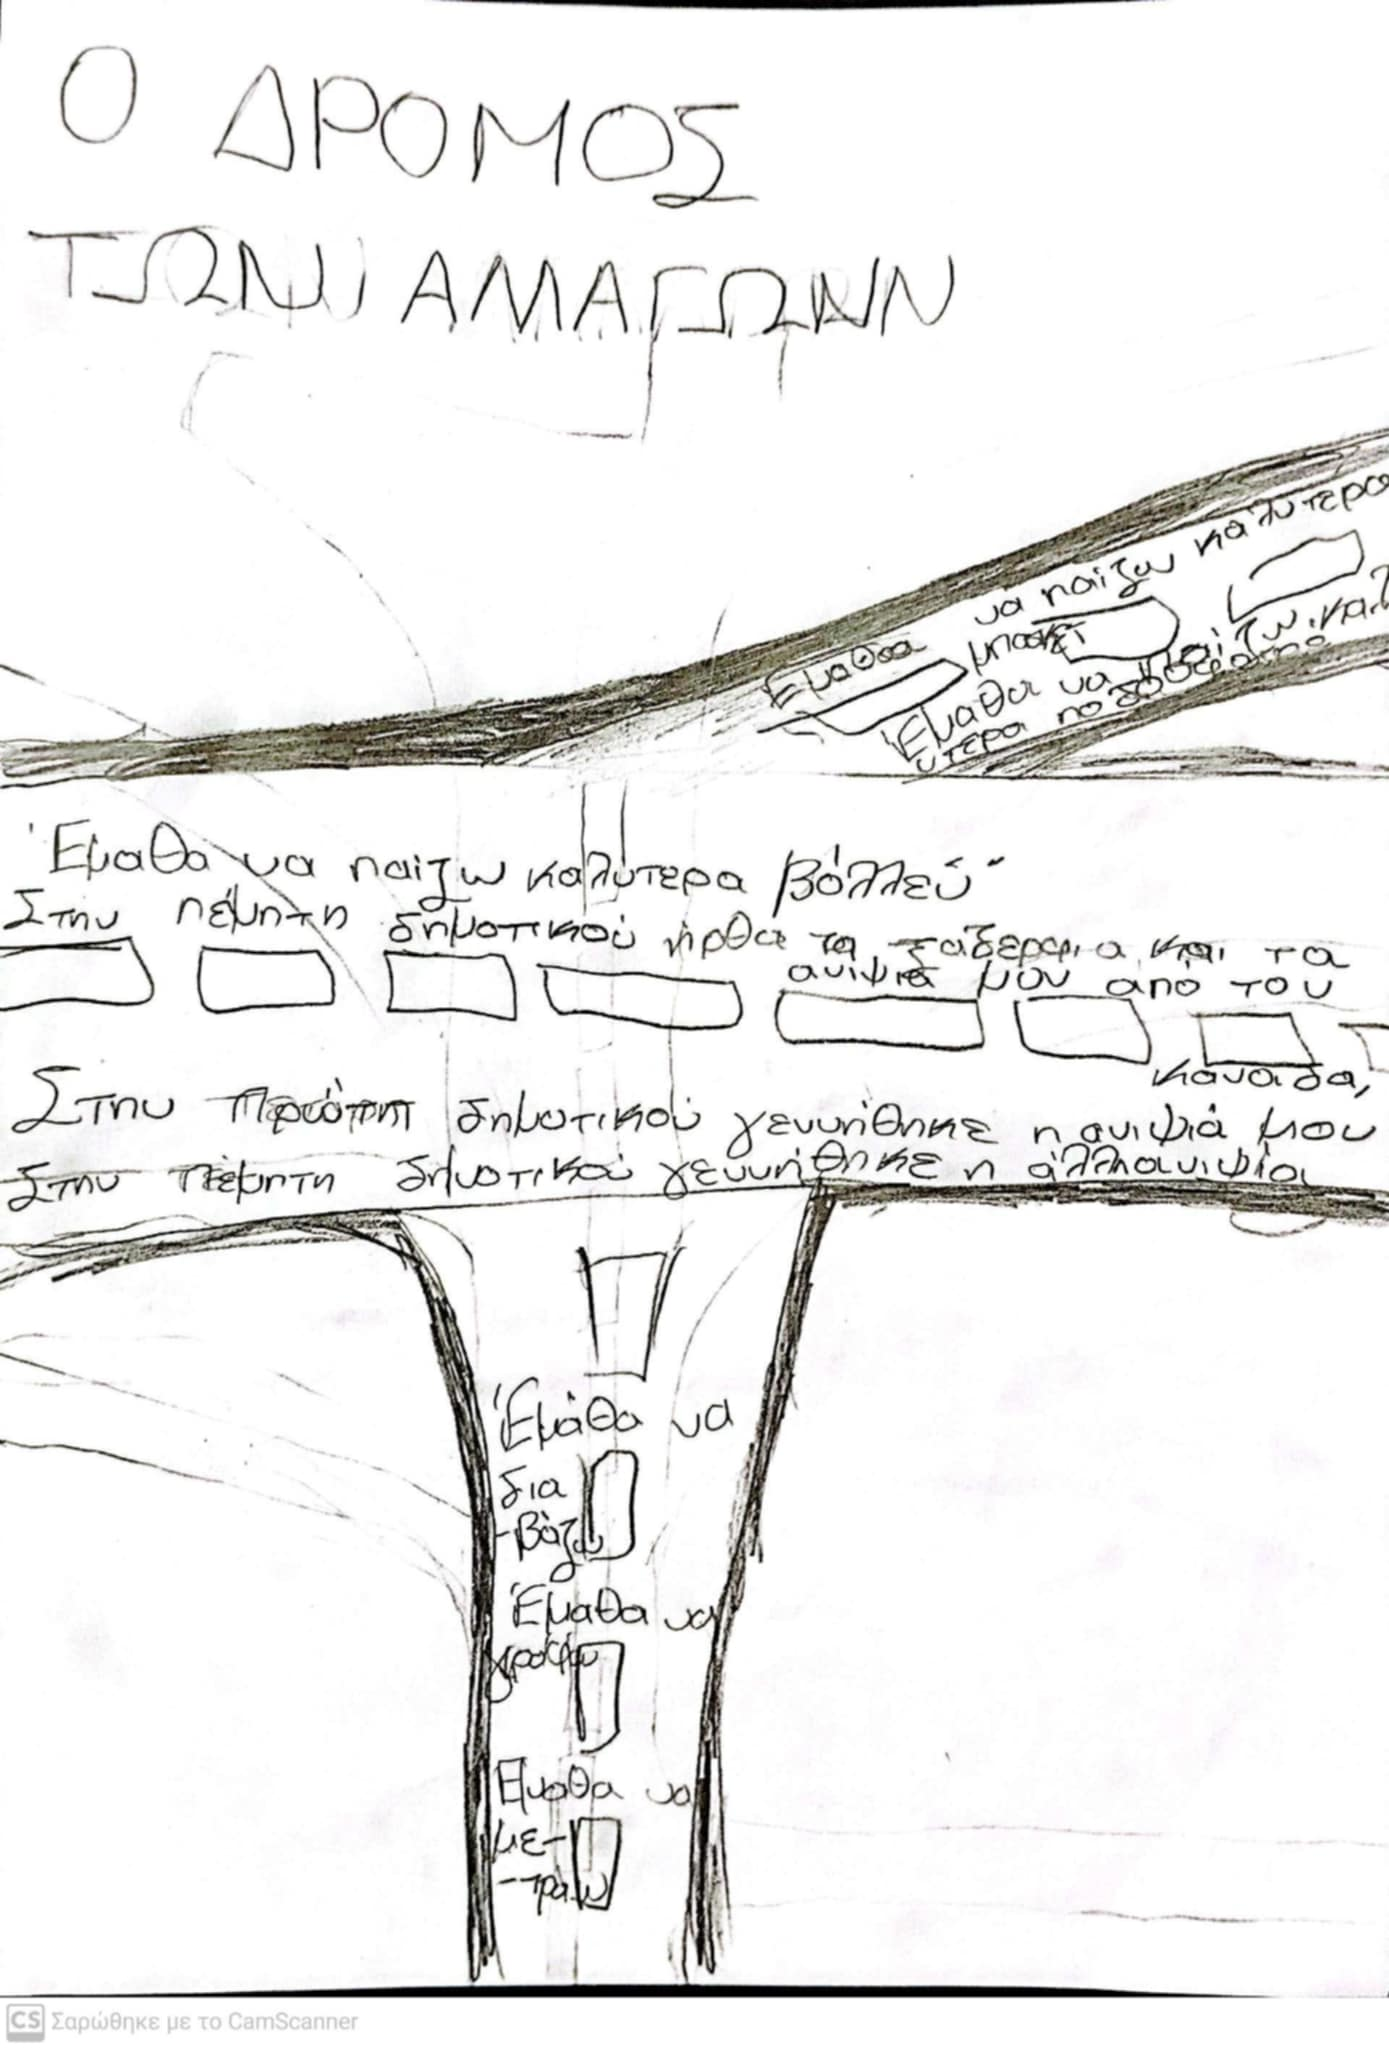 Ο ΔΡΟΜΟΣ
ΤΩΝ ΑΜΑΓΩΝΝ
να παίζω καλύτερα
Εμαθα μπασκετ
Έμαθα να παίζω καλ
υτερα ποδόσφαιρο
Έμαθα να παίζω καλύτερα βόλλεϋ
Στην πέμπτη δημοτικού ήρθα τα ξαδερφια και τα
ανιψιά μου από του
καναδα,
Στην Πρώτη δημοτικού γεννήθηκε η ανιψιά μου
Στην πέμπτη δημοτικού γεννήθηκε η άλλη ανιψία
Έμαθα να
δια
-βάζω
Έμαθα να
γράφω
Εμαθα να
με-
-τραω
CS Σαρώθηκε με το CamScanner